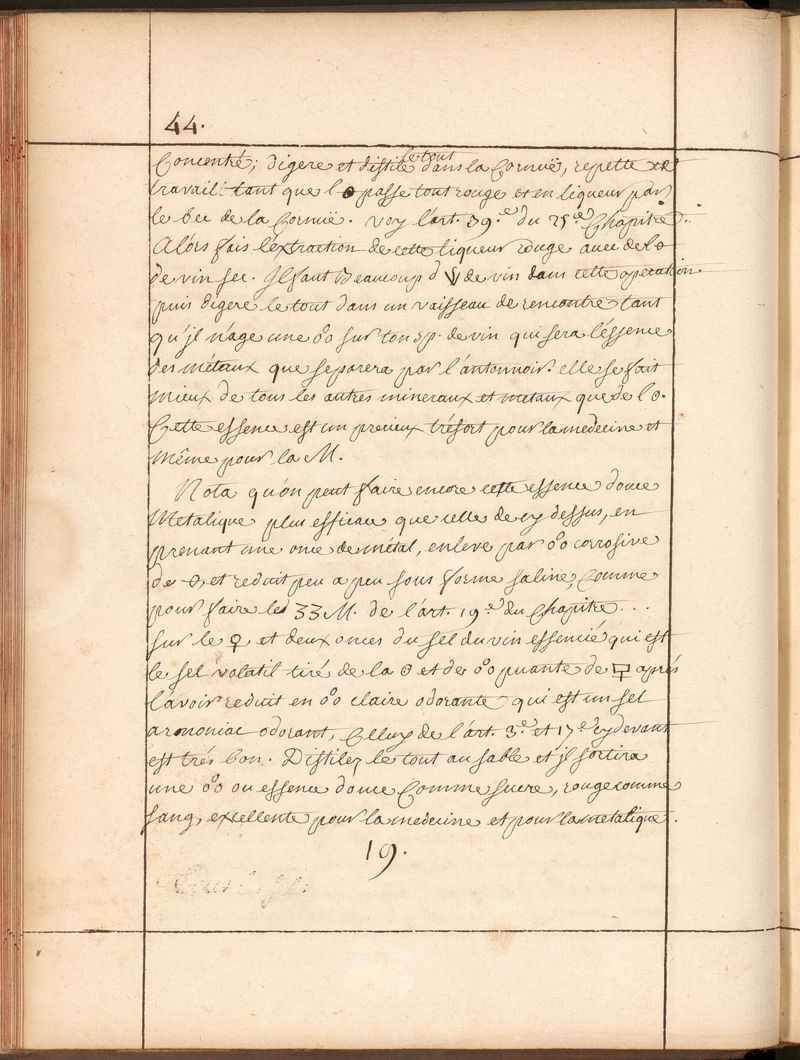 44.
Concentré; digere et distile le tout dans la Cornuë, repette ce
travail tant que l'☉ passe tout rouge et en liqueur par
le bec de la Cornuë. voy l'art. 39.e du 25e Chapitre.
Alors fais l'éxtraction de cette liqueur rouge avec de l'
de vin sec. Il faut Beaucoup d' de vin dans cette operation.
puis digere le tout dans un vaisseau de rencontre tant
qu'jl n'age une o°o sur ton sp. de vin qui sera l'éssence
des métaux que separera par l'antonnoir. elle se fait
mieux de tous les autres mineraux et metaux que de l'☉.
Cette essence est un precieux trésort pour la medecine et
même pour la M.
Nota qu'on peut faire encore cette essence douce
Metalique plus efficace que celle de cy dessus, en
prenant une once de métal, enlevé par o°o corrosive
de et reduit peu a peu sous forme saline, Comme
pour faire les 33 M. de l'art. 19.e du Chapitre ...
sur le ♀ et deux onces du sel du vin essencié qui est
le sel volatil tiré de la et de o°o puante de aprés
l'avoir reduit en o°o claire odorante qui est un sel
armoniac odorant, Celluy de l'art. 3.e et 17.e cy devant
est trés bon. Distilez le tout au sable et jl sortira
une o°o ou essence douce Comme sucre, rouge comme
sang, excellente pour la medecine et pour la metalique.
19.